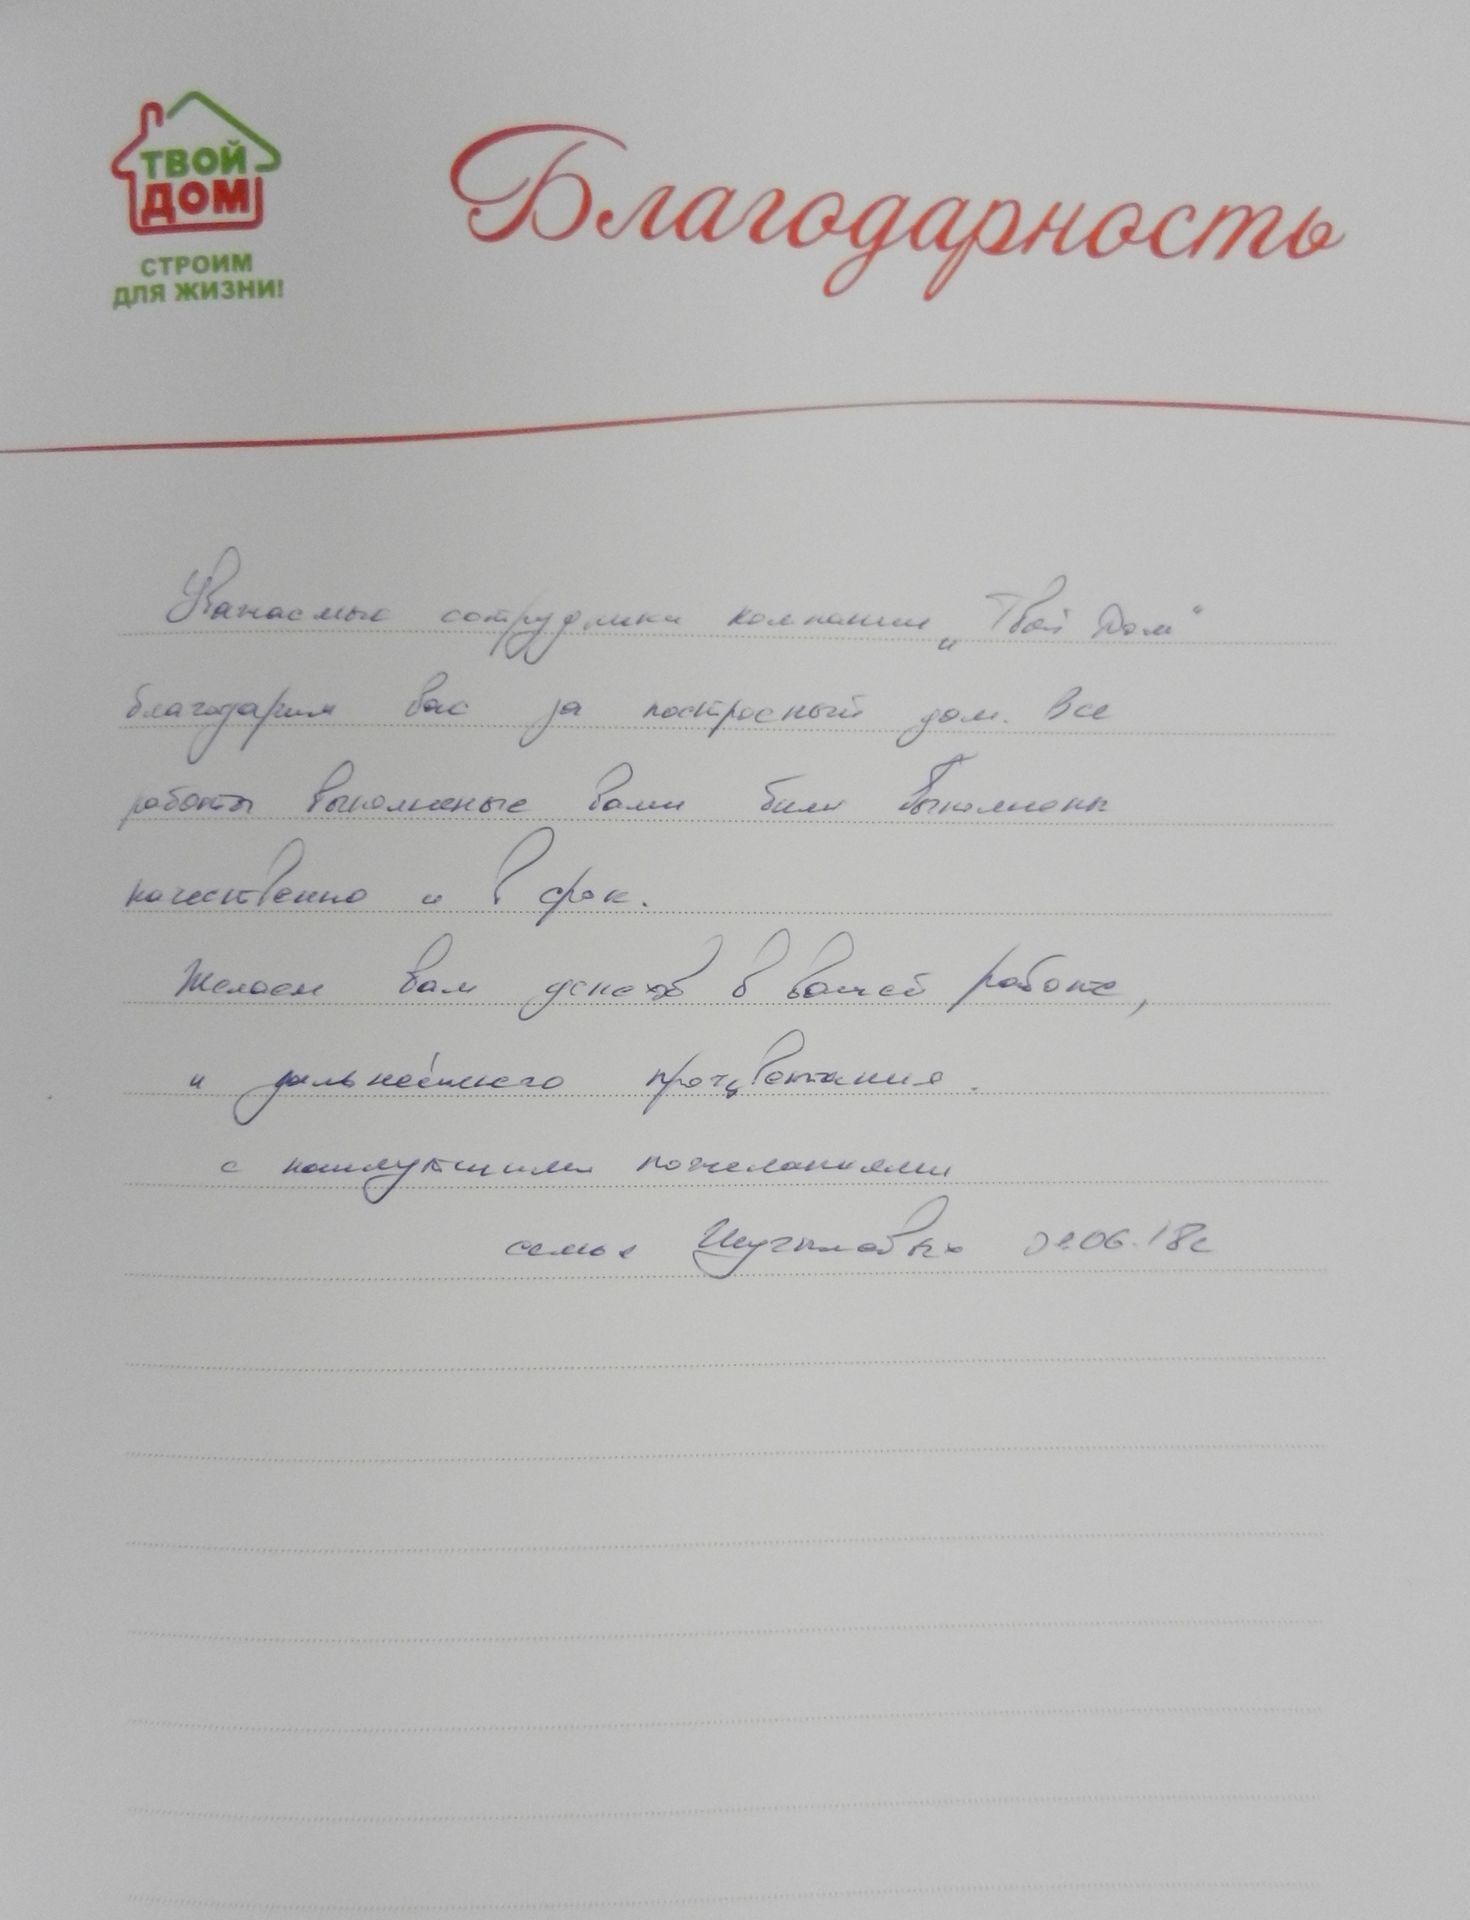 ТВОЙ
ДОМ
СТРОИМ
ДЛЯ ЖИЗНИ!
Благодарность
Уважаемые сотрудники компании „Твой Дом“
благодарим вас за построеный дом. Все
работы выполненые вами были выполнены
качественно и в срок.
Желаем вам успехов в вашей работе,
и дальнейшего процветания.
с наилутшими пожеланиями
семья